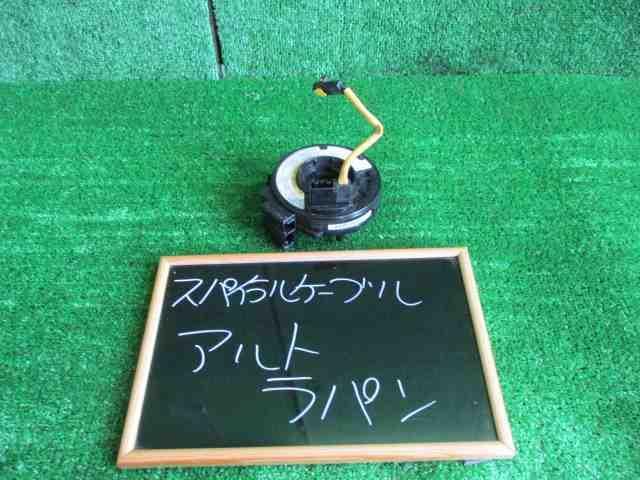 スパイラルケーブル
アルト
ラパン